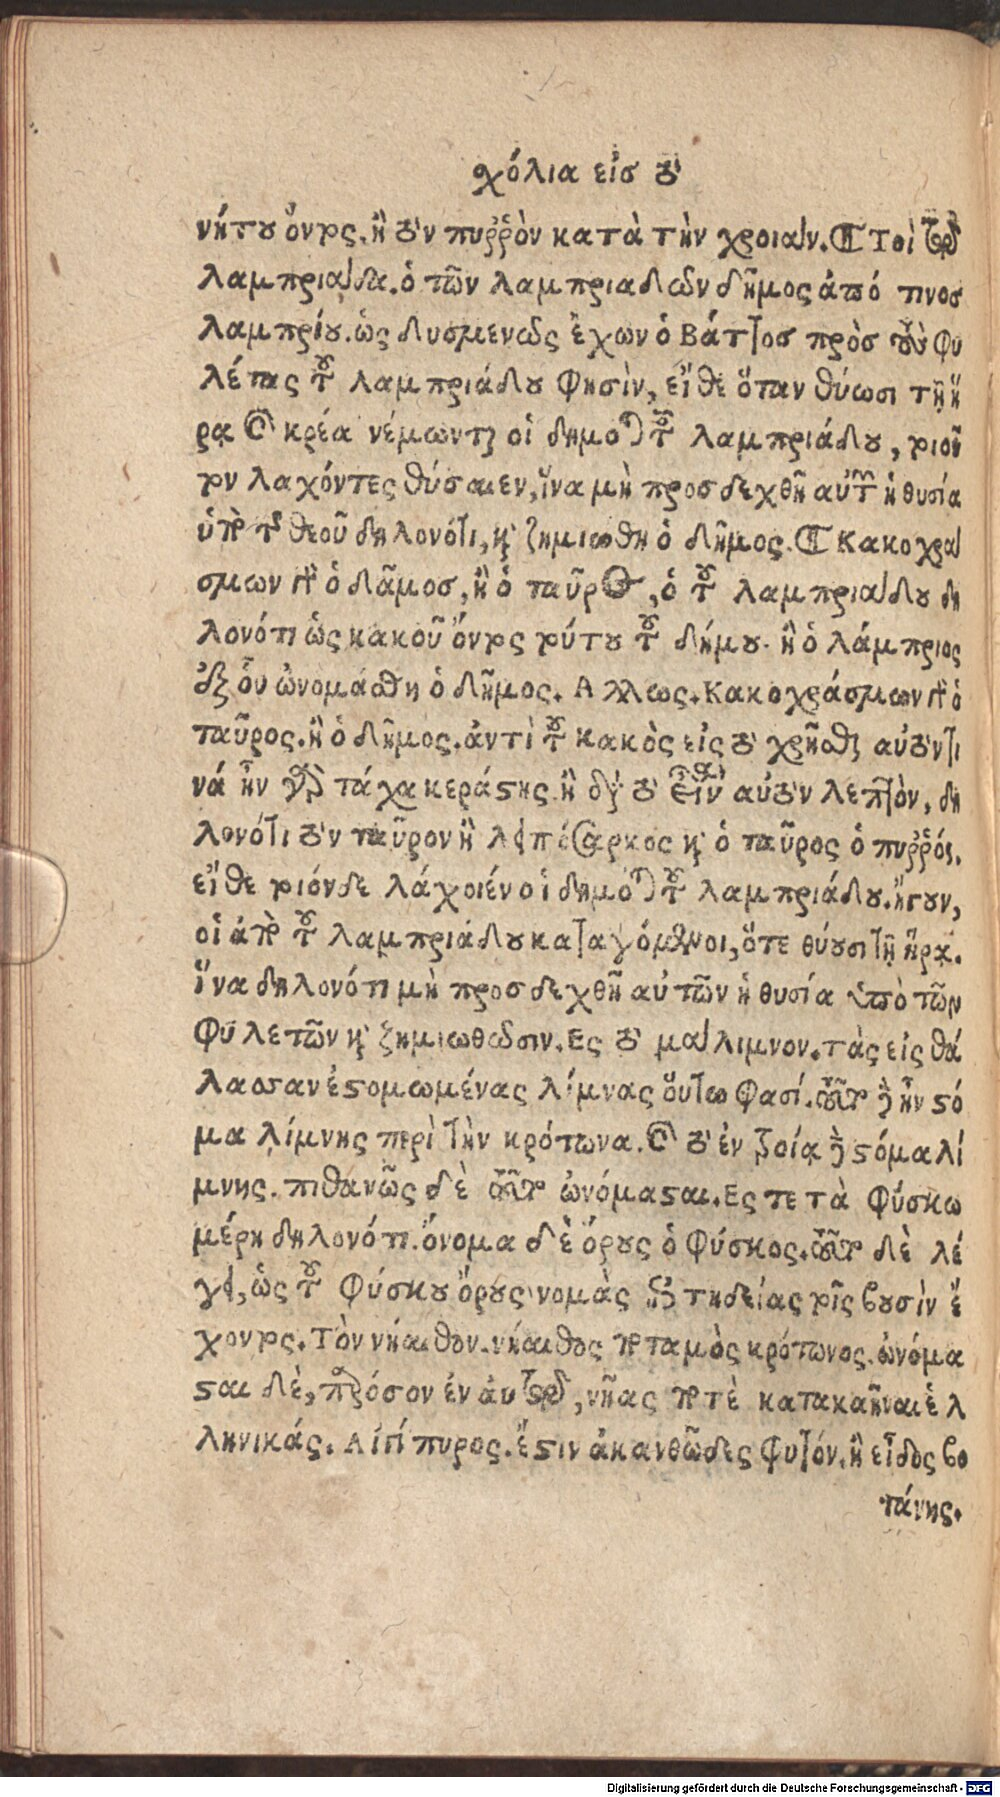 χόλια εἰσ τὸ
νήτου ὄντος. ἢ τὸν πυῤῥὸν κατὰ τὴν χροιάν. Τοὶ τῶ
λαμπριάδα. ὁ τῶν λαμπριαδῶν δῆμος ἀπό τινοσ
λαμπρίου. ὡς δυσμενῶς ἔχων ὁ Βάττοσ πρὸσ τοὺς φυ
λέτας τοῦ λαμπριάδου φησὶν, εἴθε ὅταν θύωσι τῇ ἥ
ρᾳ καὶ κρέα νέμωνται οἱ δημόται τοῦ λαμπριάδου, τοιοῦ
τον λαχόντες θύσαιεν, ἵνα μὴ προσδεχθῇ αὐτῶν ἡ θυσία
ὑπὸ τοῦ θεοῦ δηλονότι, καὶ ζημιωθῇ ὁ δῆμος. Κακοχρά
σμων γὰρ ὁ δᾶμοσ, ἢ ὁ ταῦρος, ὁ τοῦ λαμπριάδου δη
λονότι ὡς κακοῦ ὄντος τούτου τοῦ δήμου. ἢ ὁ λάμπριος
ἐξ οὗ ὠνομάσθη ὁ δῆμος. Αλλως. Κακοχράσμων γὰρ ὁ
ταῦρος. ἢ ὁ δῆμος. ἀντὶ τοῦ κακὸς εἰς τὸ χρῆσθαι αὐτόν τι
να ἦν γὰρ τάχα κεράστης. ἢ διὰ τὸ εἶναι αὐτὸν λεπτὸν, δη
λονότι τὸν ταῦρον ἢ λειπόσαρκος καὶ ὁ ταῦρος ὁ πυῤῥός.
εἴθε τοιόνδε λάχοιεν οἱ δημόται τοῦ λαμπριάδου. ἤγουν,
οἱ ἀπὸ τοῦ λαμπριάδου καταγόμενοι, ὅτε θύουσι τῇ ἥρᾳ.
ἵνα δηλονότι μὴ προσδεχθῇ αὐτῶν ἡ θυσία ὑπὸ τῶν
φυλετῶν καὶ ζημιωθῶσιν. Ες τὸ μάλιμνον. τὰς εἰς θά
λασσαν ἐστομωμένας λίμνας οὕτω φασί. τοῦτο δὲ ἦν στό
μα λίμνης περὶ τὴν κρότωνα. καὶ τὸ ἐν τροίᾳ δὲ στόμα λί
μνης. πιθανῶς δὲ τοῦτο ὠνόμασται. Ες τε τὰ φύσκω
μέρη δηλονότι. ὄνομα δὲ ὄρους ὁ φύσκος. τοῦτο δὲ λέ
γει, ὡς τοῦ φύσκου ὄρους νομὰς ἐπιτηδείας τοῖς βουσὶν ἔ
χοντος. Τὸν νήαιθον. νήαιθος ποταμὸς κρότωνος. ὠνόμα
σται δὲ, παρόσον ἐν αὐτῷ, νῆας ποτὲ κατακαῆναι ἑλ
ληνικάς. Αἰγίπυρος. ἔστιν ἀκανθῶδες φυτόν. ἢ εἶδος βο
τάνης.
Digitalisierung gefördert durch die Deutsche Forschungsgemeinschaft - DFG